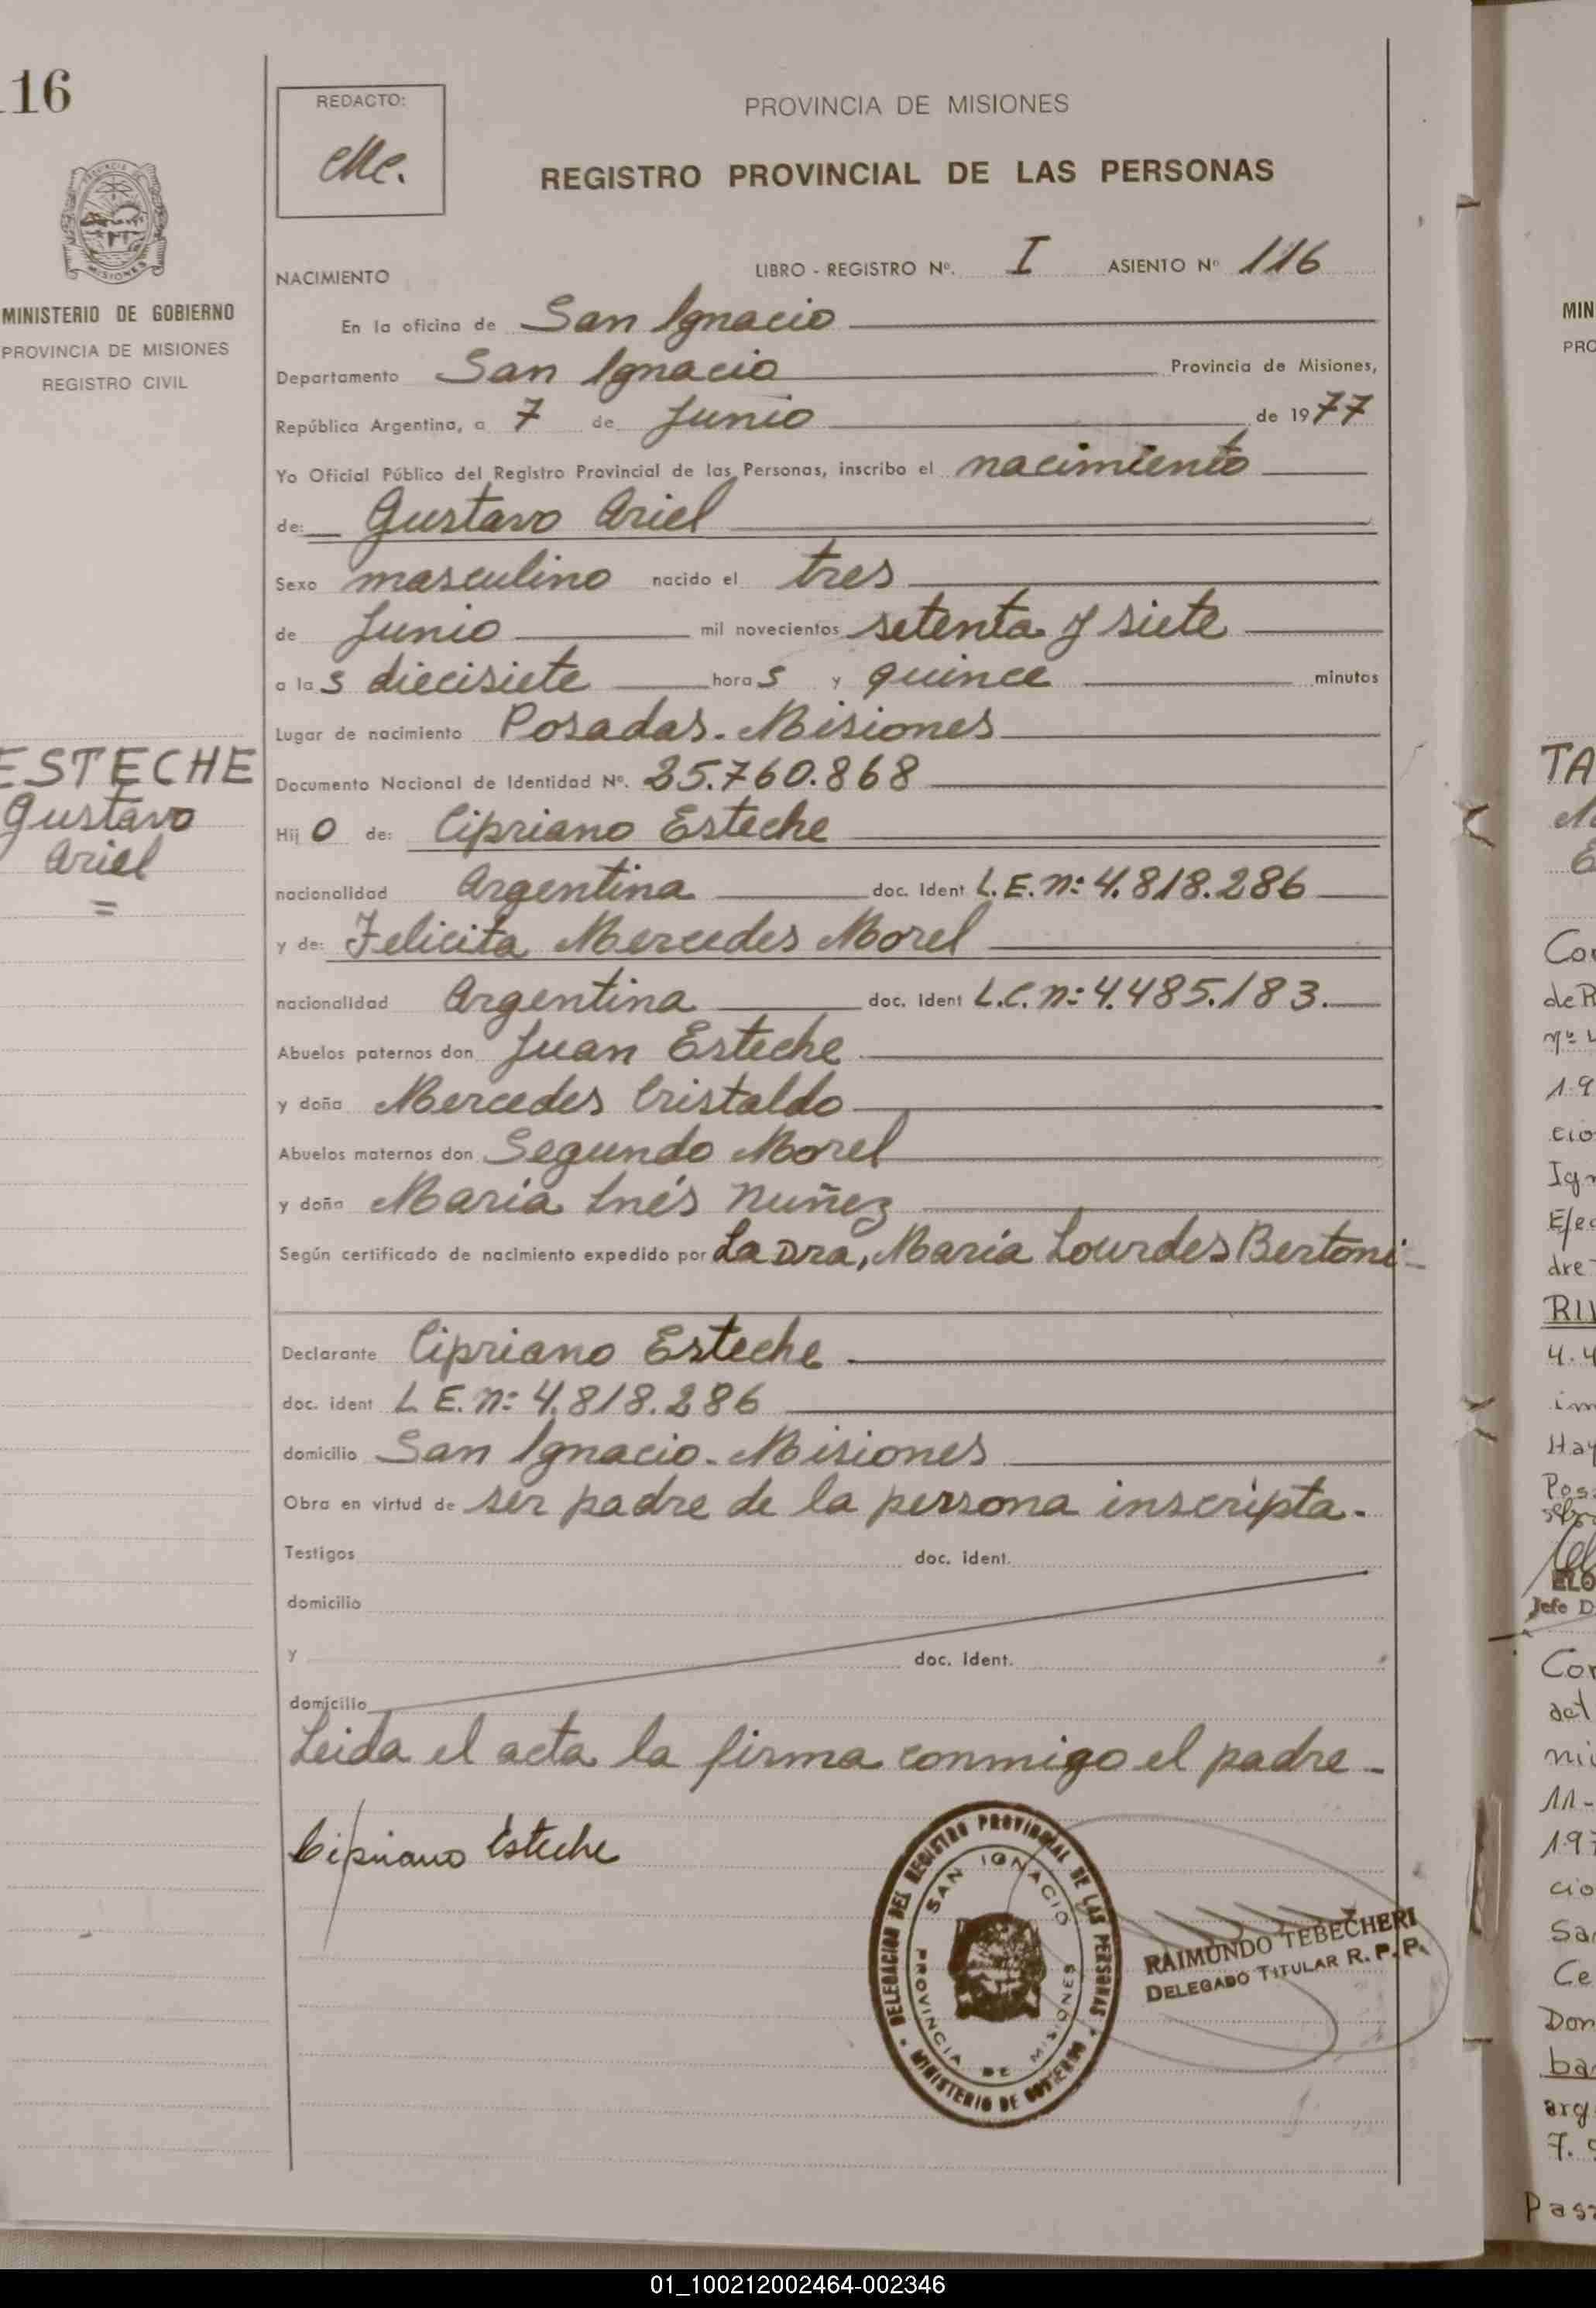 116
REDACTO:
PROVINCIA DE MISIONES
REGISTRO PROVINCIAL DE LAS PERSONAS
MISIONES
MINISTERIO DE GOBIERNO
PROVINCIA DE MISIONES
REGISTRO CIVIL
NACIMIENTO LIBRO - REGISTRO Nº. I ASIENTO Nº 116
En la oficina de San Ignacio
Departamento San Ignacio Provincia de Misiones,
República Argentina, a 7 de Junio de 1977
Yo Oficial Público del Registro Provincial de las Personas, inscribo el nacimiento
de: Gustavo Ariel
Sexo masculino nacido el tres
de Junio mil novecientos setenta y siete
a las diecisiete horas y quince minutos
Lugar de nacimiento Posadas. Misiones
ESTECHE
Gustavo
Ariel
=
Documento Nacional de Identidad Nº. 25.760.868
Hijo de: Cipriano Esteche
nacionalidad Argentina doc. ident L.E. nº: 4.818.286
y de: Felicita Mercedes Morel
nacionalidad Argentina doc. ident L.C. nº: 4.485.183.
Abuelos paternos don Juan Esteche
y doña Mercedes Cristaldo
Abuelos maternos don Segundo Morel
y doña Maria Inés Nuñez
Según certificado de nacimiento expedido por La Dra, María Lourdes Bertoni-
Declarante Cipriano Esteche
doc. ident L E. nº: 4.818.286
domicilio San Ignacio. Misiones
Obra en virtud de ser padre de la persona inscripta.
Testigos doc. ident.
domicilio
y doc. ident.
domicilio
Leida el acta la firma conmigo el padre -
Cipriano Esteche
DELEGACION DEL REGISTRO PROVINCIAL DE LAS PERSONAS
MINISTERIO DE GOBIERNO
SAN IGNACIO
PROVINCIA DE MISIONES
RAIMUNDO TEBECHERI
DELEGADO TITULAR R. P. P.
MIN
PRO
TA
Co
de R
1.9
cio
Ign
Efec
dre
RIV
4.4
im
Hay
Pos
ELO
Jefe D
Cor
del
ni
11-
197
cio
Sa
Ce
Don
ba
arg
7.
Pas
01_100212002464-002346